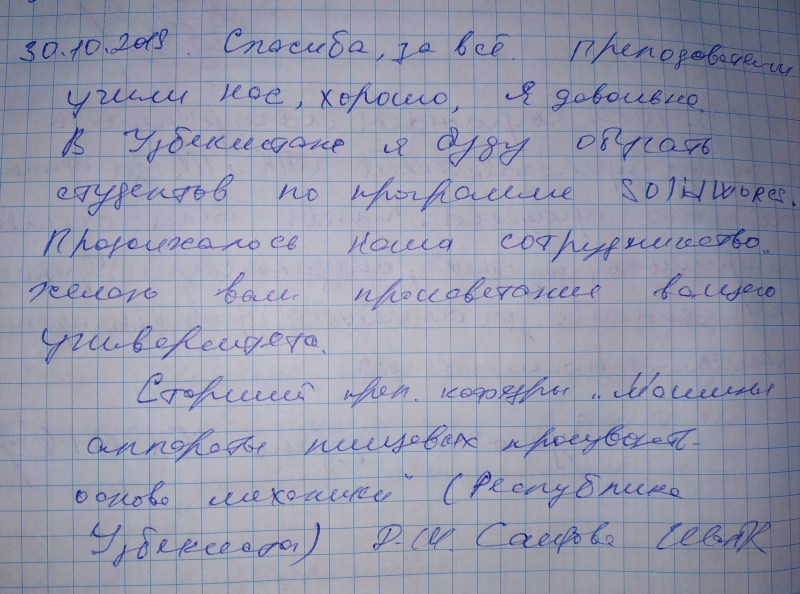 30.10.2019. Спасиба, за всё. Преподаватели
учили нас, хорошо, Я довольна.
В Узбекистане я буду обучать
студентов по программе
Продолжалось наша сотрудничиство.
желаю вам процветание вашего
университета.
Старший преп. кафедры „Машины
аппараты пищевых
основа механики" (Республика
Узбекистан) Д.Ш. Саифова